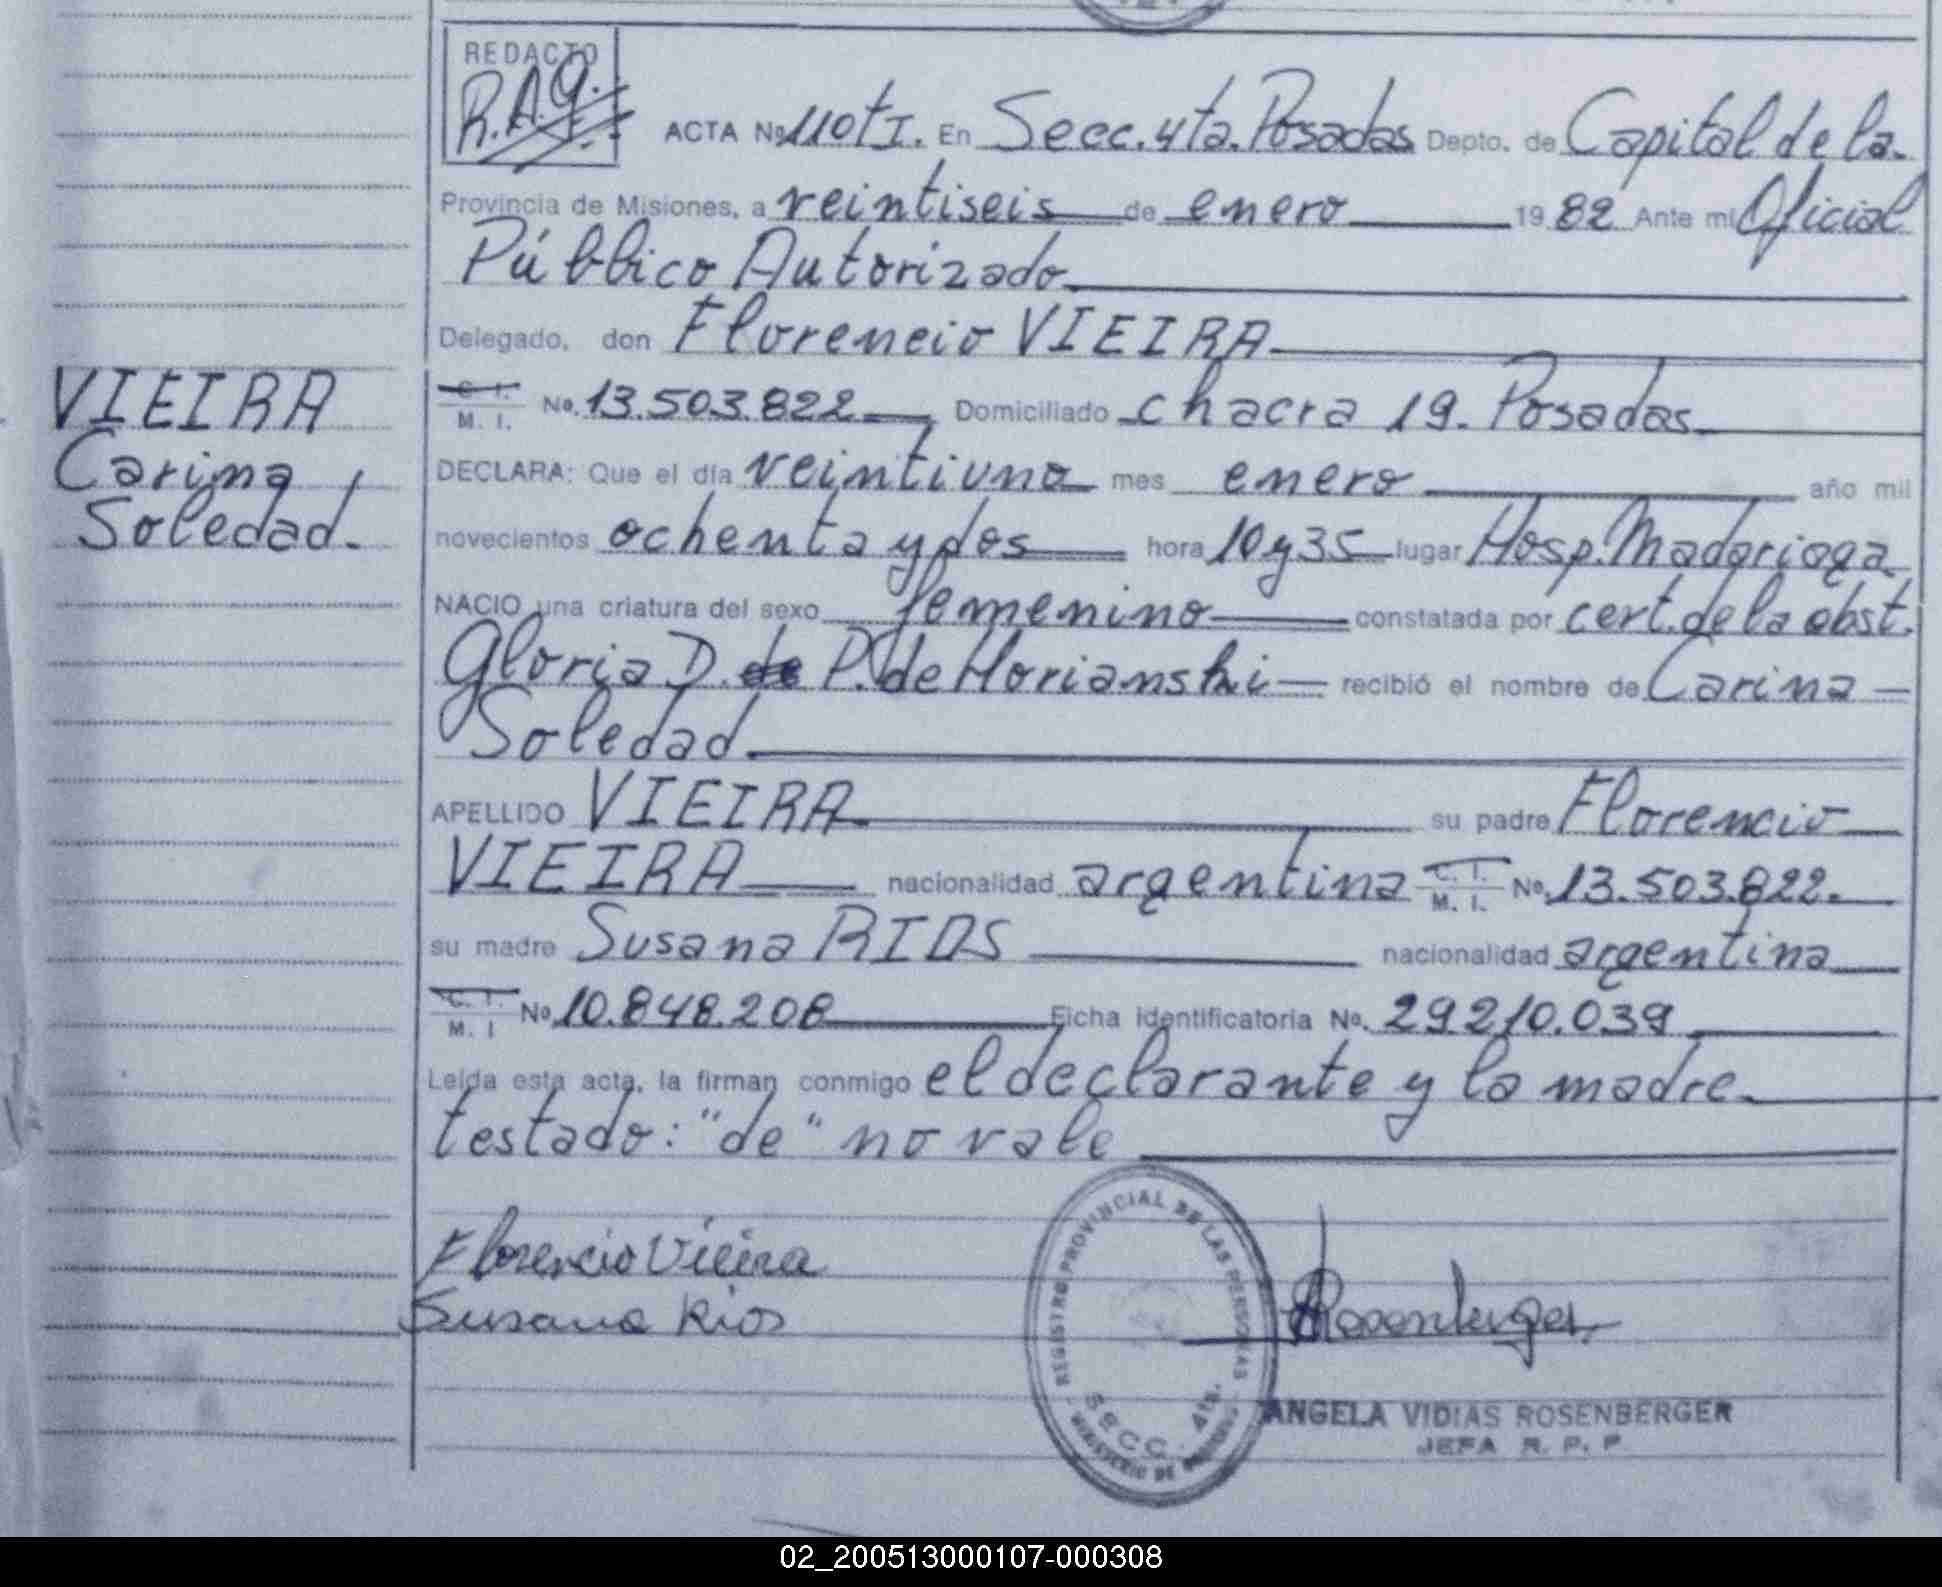 REDACTO
R.A.G.
ACTA No 110 tI. En Secc. 4ta. Posadas Depto. de Capital de la
Provincia de Misiones, a veintiseis de enero 1982 Ante mi Oficial
Público Autorizado
Delegado, don Florencio VIEIRA
C. I. M. I. No. 13.503.822 Domiciliado chacra 19. Posadas
VIEIRA
Carina
Soledad.
DECLARA: Que el día veintiuno mes enero año mil
novecientos ochenta y dos hora 10 y 35 lugar Hosp. Madariaga
NACIO una criatura del sexo femenino constatada por cert. de la obst.
Gloria D. de P. de Horianski recibió el nombre de Carina
Soledad
APELLIDO VIEIRA su padre Florencio
VIEIRA nacionalidad argentina C. I. M. I. No. 13.503.822.
su madre Susana RIOS nacionalidad argentina
C. I. M. I No. 10.848.208 Ficha identificatoria No. 29210.039
Leída esta acta, la firman conmigo el declarante y la madre
testado: "de" no vale
Florencio Vieira
Susana Rios
REGISTRO PROVINCIAL DE LAS PERSONAS
SECC. 4ta.
MINISTERIO DE
Rosenberger
ANGELA VIDIAS ROSENBERGER
JEFA R. P. P.
02_200513000107-000308